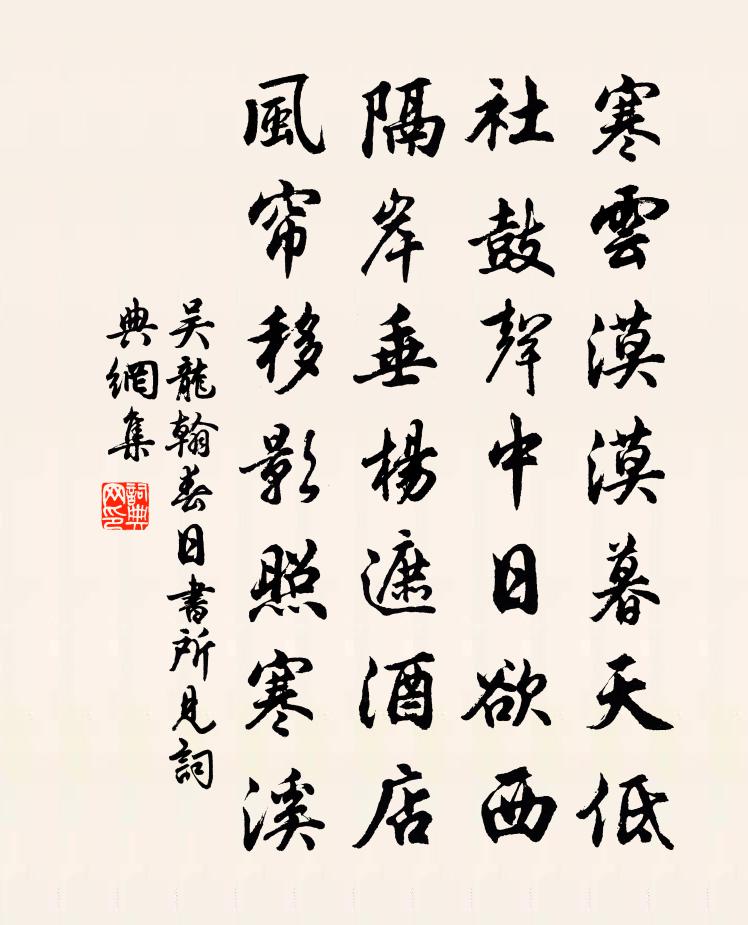 寒雲漠漠暮天低
社鼓聲中日欲西
隔岸垂楊遮酒店
風帘移影照寒溪
吴龍翰春日書所見詞
典網集
詞典
网印